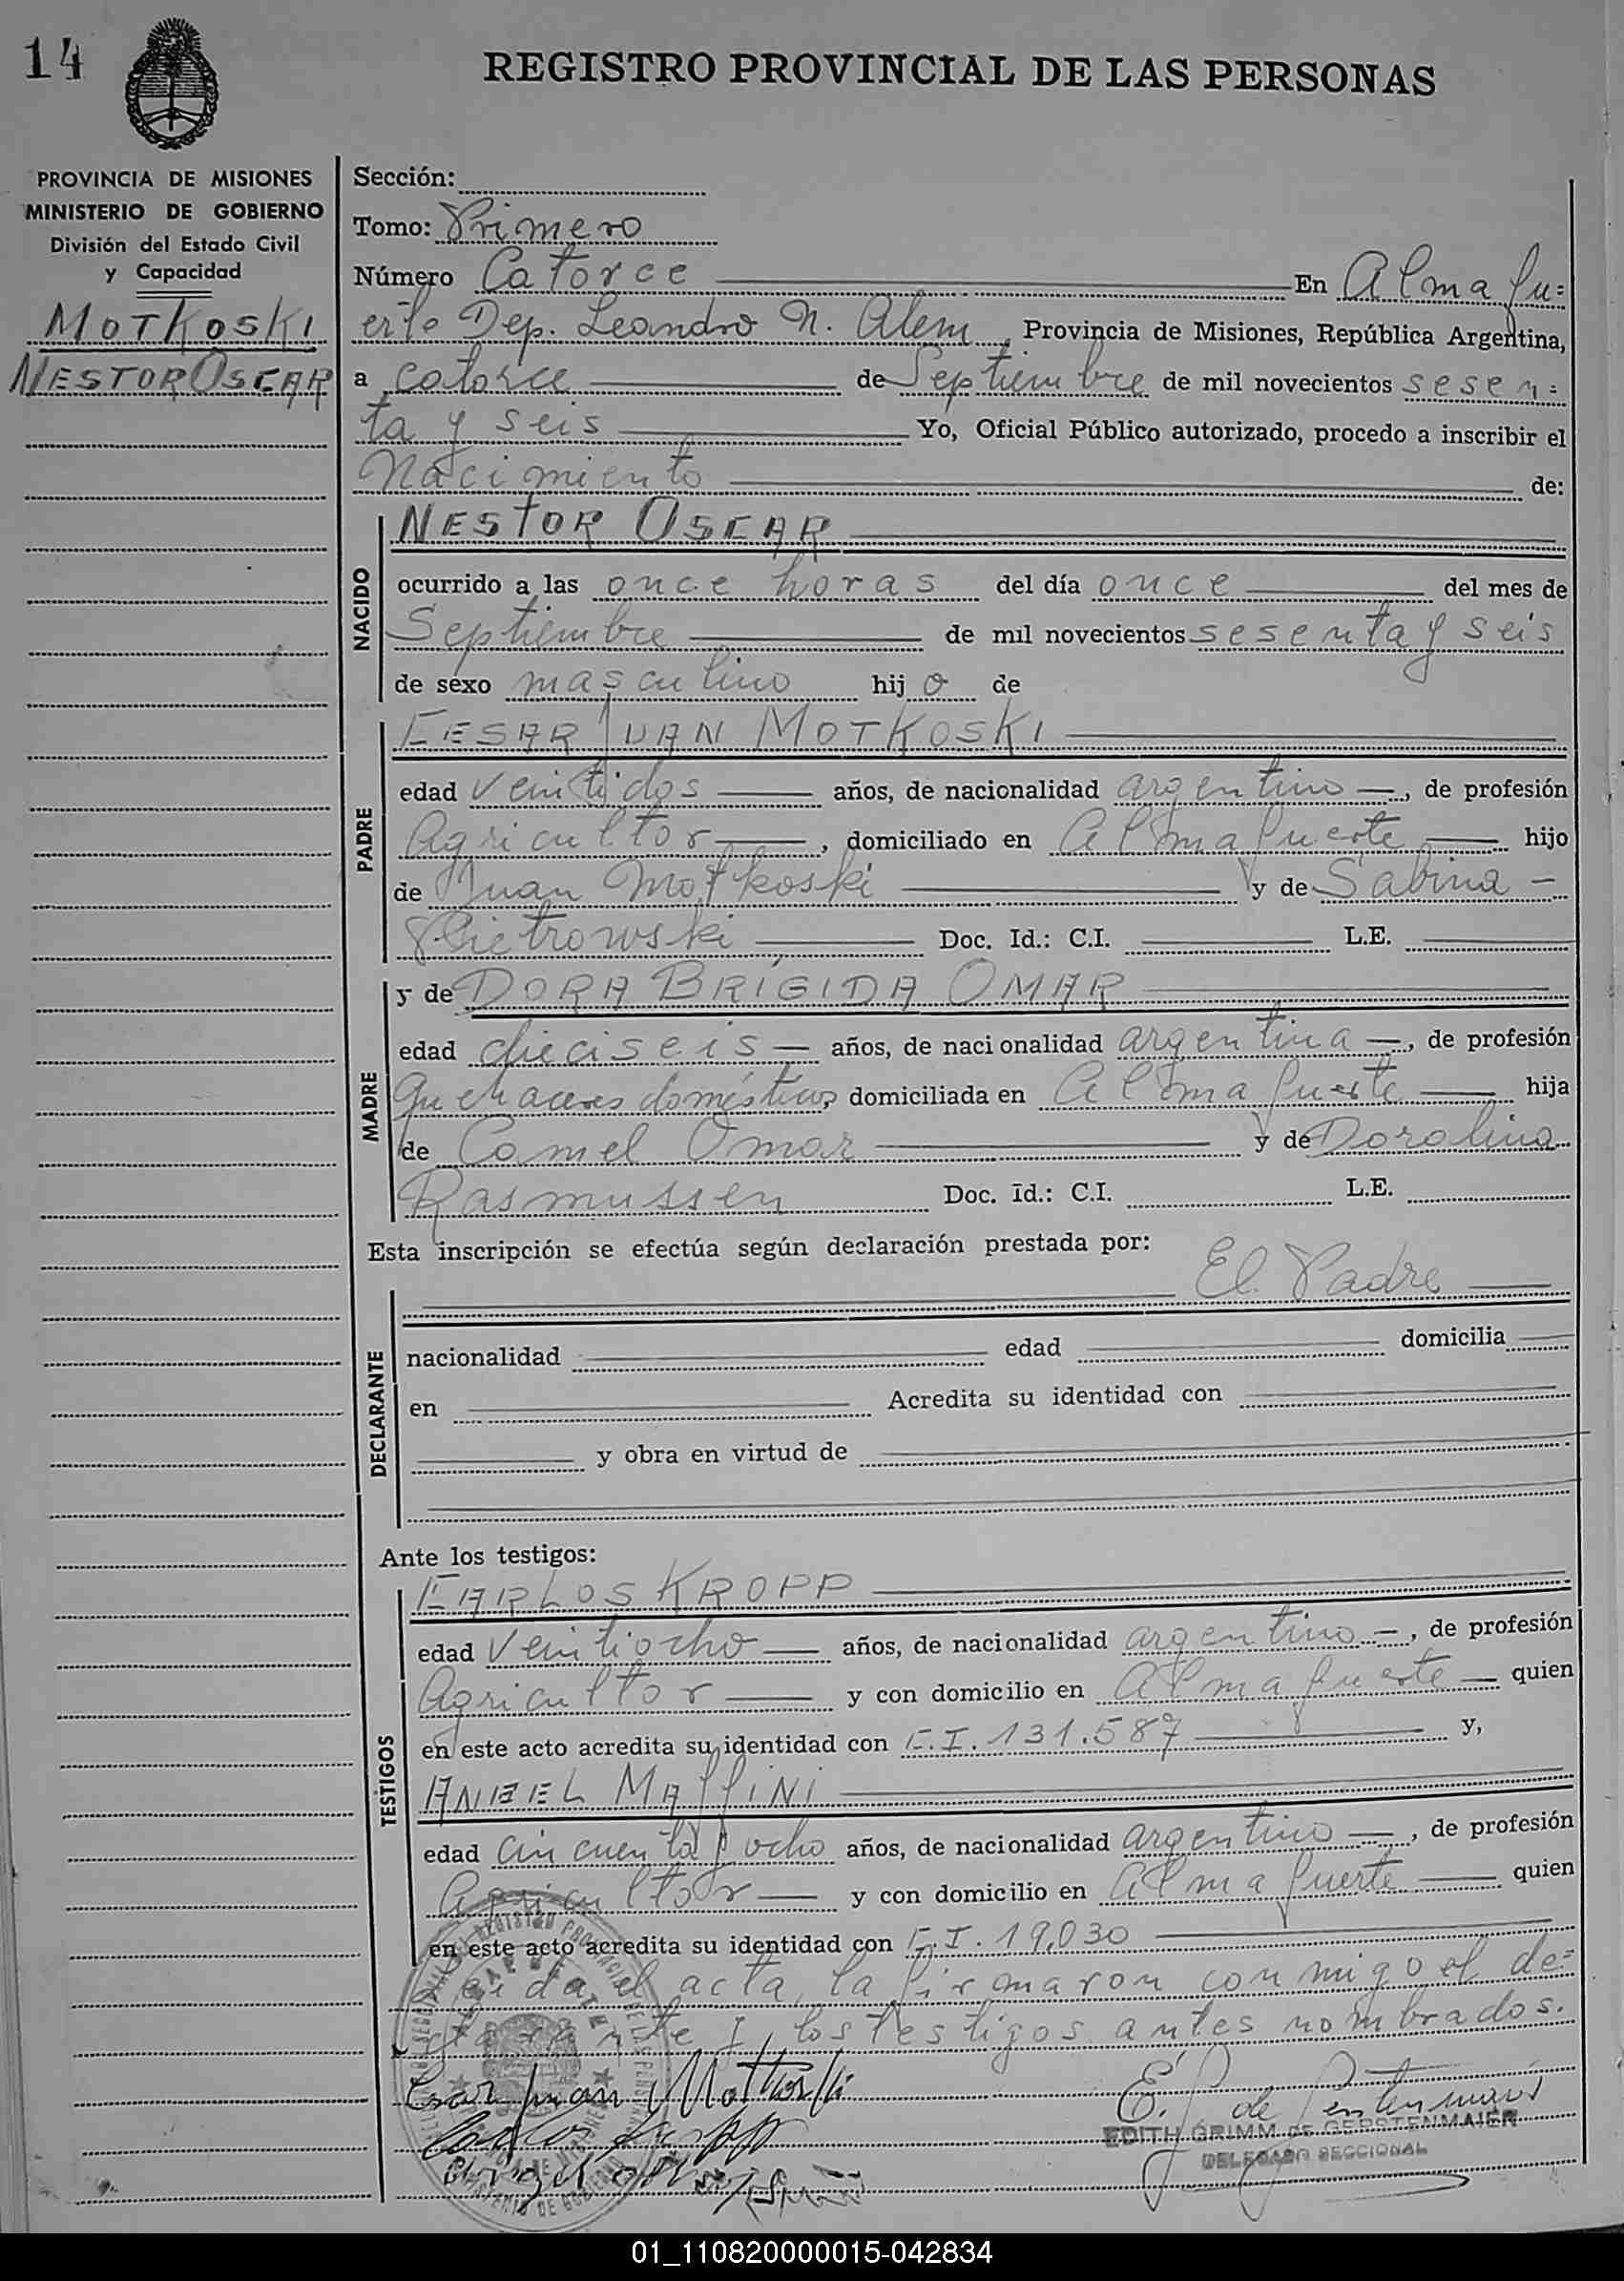 14
REGISTRO PROVINCIAL DE LAS PERSONAS
PROVINCIA DE MISIONES
MINISTERIO DE GOBIERNO
División del Estado Civil
y Capacidad
MOTKOSKI
NESTOR OSCAR
Sección:
Tomo: Primero
Número Catorce En Almafu=
erte Dep. Leandro N. Alem, Provincia de Misiones, República Argentina,
a catorce de Septiembre de mil novecientos sesen=
ta y seis Yo, Oficial Público autorizado, procedo a inscribir el
Nacimiento de:
NACIDO
NESTOR OSCAR
ocurrido a las once horas del día once del mes de
Septiembre de mil novecientos sesenta y seis
de sexo masculino hijo de
PADRE
CESAR JUAN MOTKOSKI
edad veintidos años, de nacionalidad argentino, de profesión
Agricultor, domiciliado en Almafuerte hijo
de Juan Motkoski y de Sabina
Pietrowski Doc. Id.: C.I. L.E.
MADRE
y de DORA BRÍGIDA OMAR
edad dieciseis años, de nacionalidad argentina, de profesión
Quehaceres domésticos domiciliada en Almafuerte hija
de Camel Omar y de Dorolina
Rasmussen Doc. Id.: C.I. L.E.
Esta inscripción se efectúa según declaración prestada por:
El Padre
DECLARANTE
nacionalidad edad domicilia
en Acredita su identidad con
y obra en virtud de
Ante los testigos:
TESTIGOS
CARLOS KROPP
edad veintiocho años, de nacionalidad argentino, de profesión
Agricultor y con domicilio en Almafuerte quien
en este acto acredita su identidad con C.I. 131.587 y,
ANGEL MAffINI
edad cincuenta y ocho años, de nacionalidad argentino, de profesión
Agricultor y con domicilio en Almafuerte quien
en este acto acredita su identidad con C.I. 19.030
Leida el acta, la firmaron conmigo el de=
clarante y los testigos antes nombrados.
Cesar Juan Motkoski
Carlos Kropp
EDITH GRIMM DE GERSTENMAIER
DELEGADO SECCIONAL
01_110820000015-042834